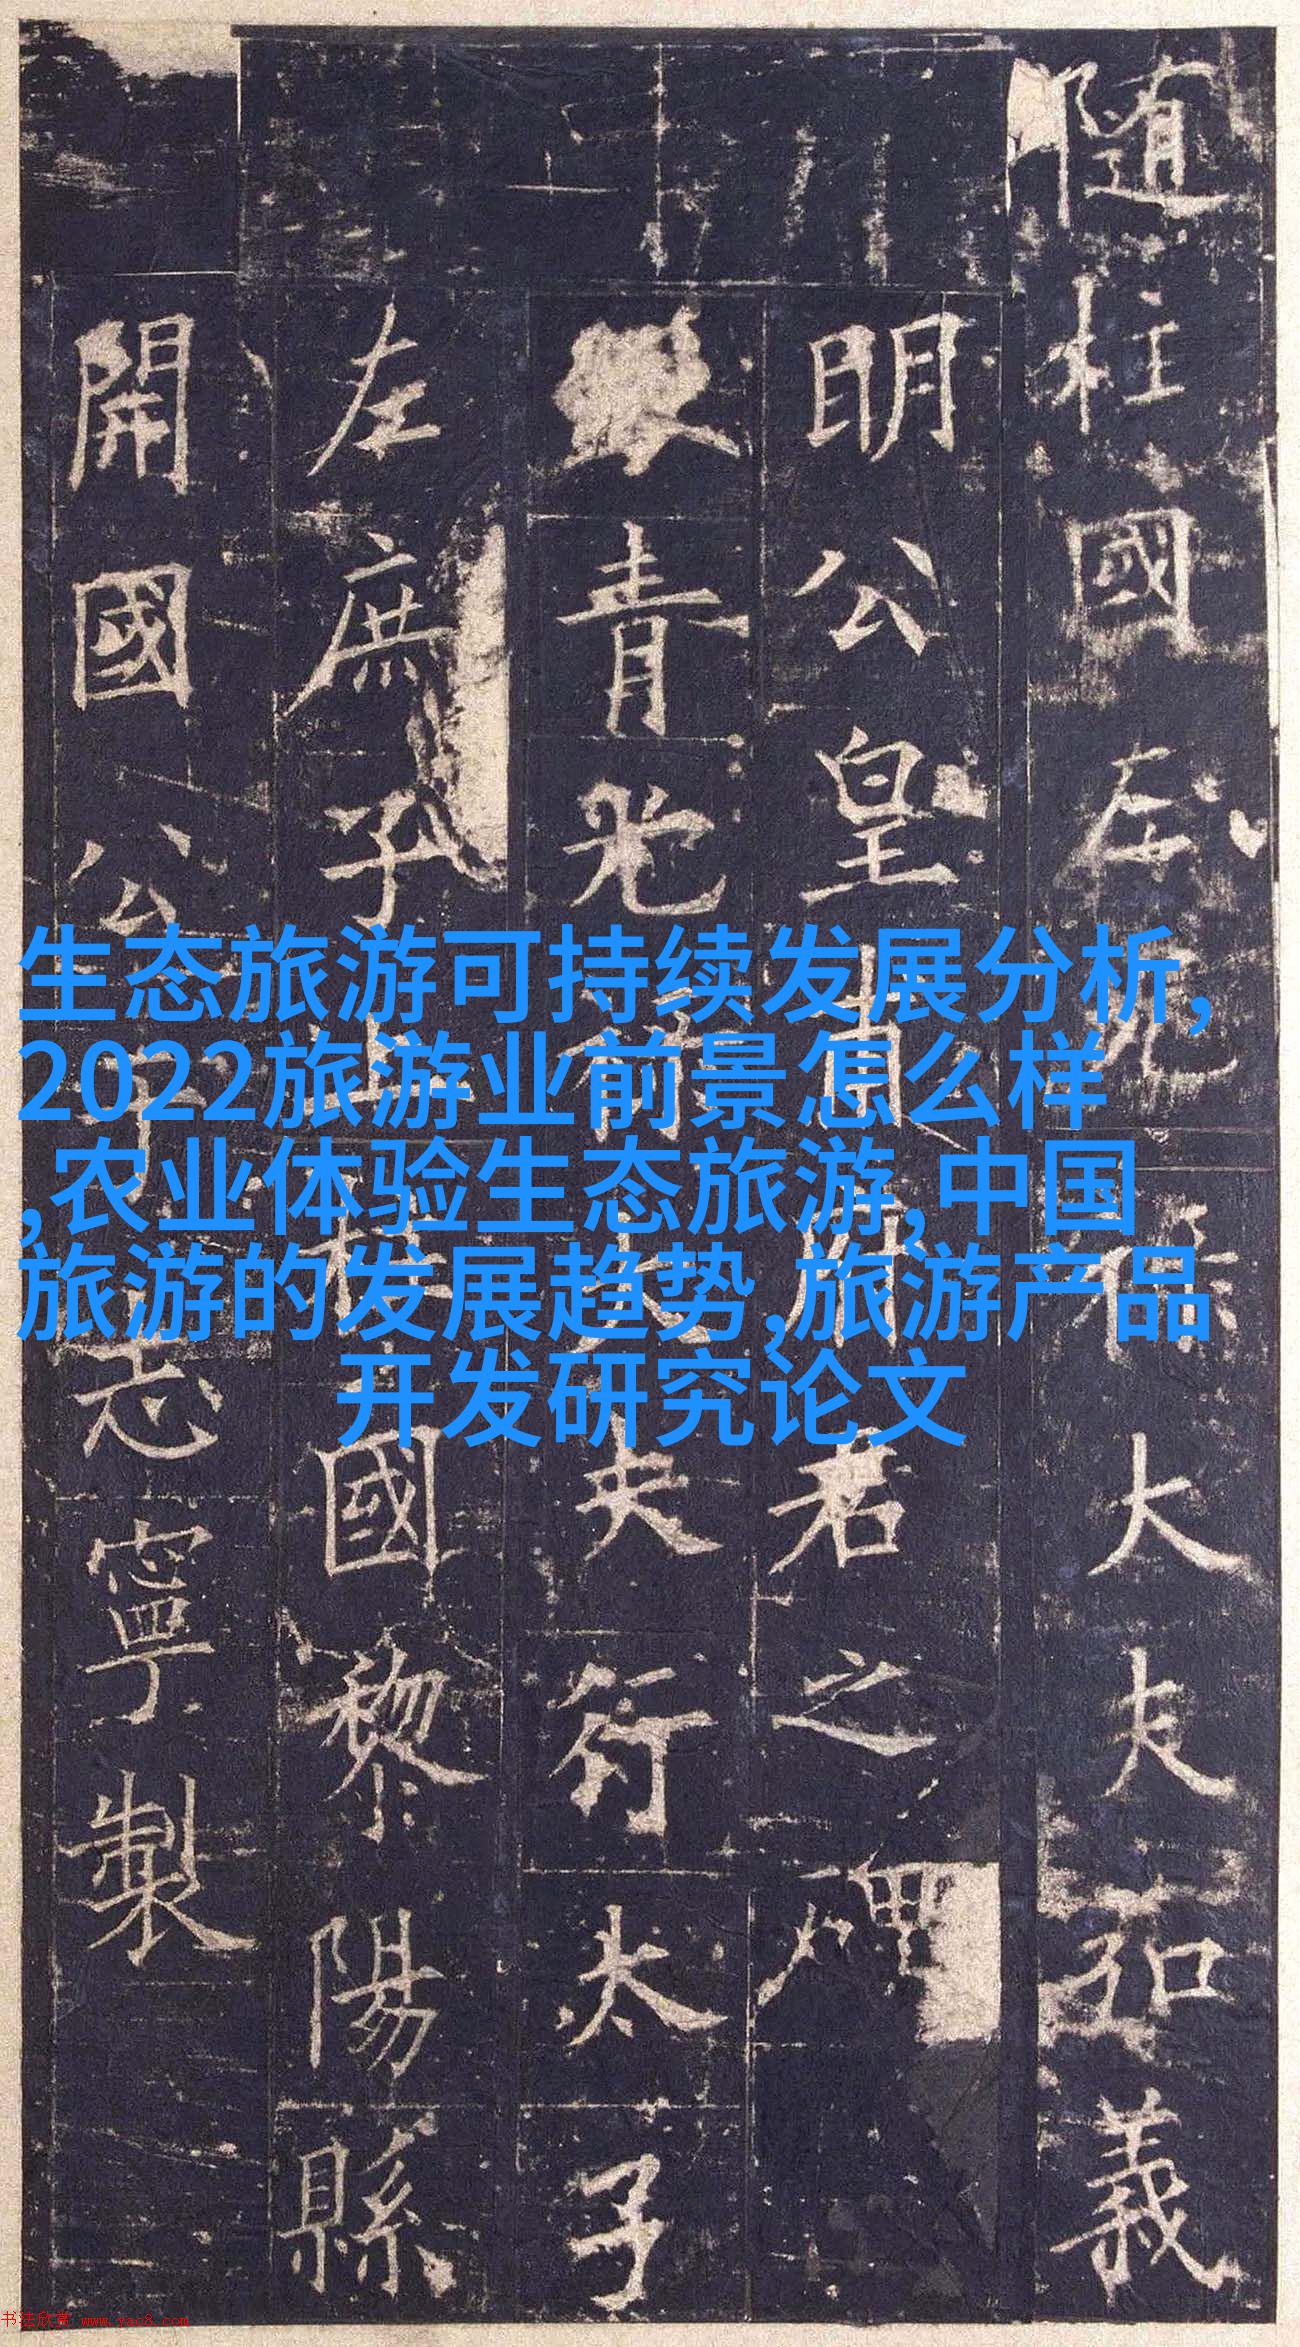 生态旅游可持续发展分析,
2022旅游业前景怎么样
,农业体验生态旅游,中国
旅游的发展趋势,旅游产品
开发研究论文
随柱國左光祿大夫弘義
明公皇甫府君之碑
青光祿大夫行太子
左庶子上柱國黎陽縣
開國公于志寧製
书法欣赏 www.yac8.com